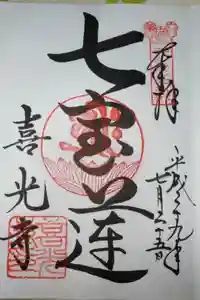 奉拝
平成二十九年
七月二十五日
七宝蓮
喜光寺